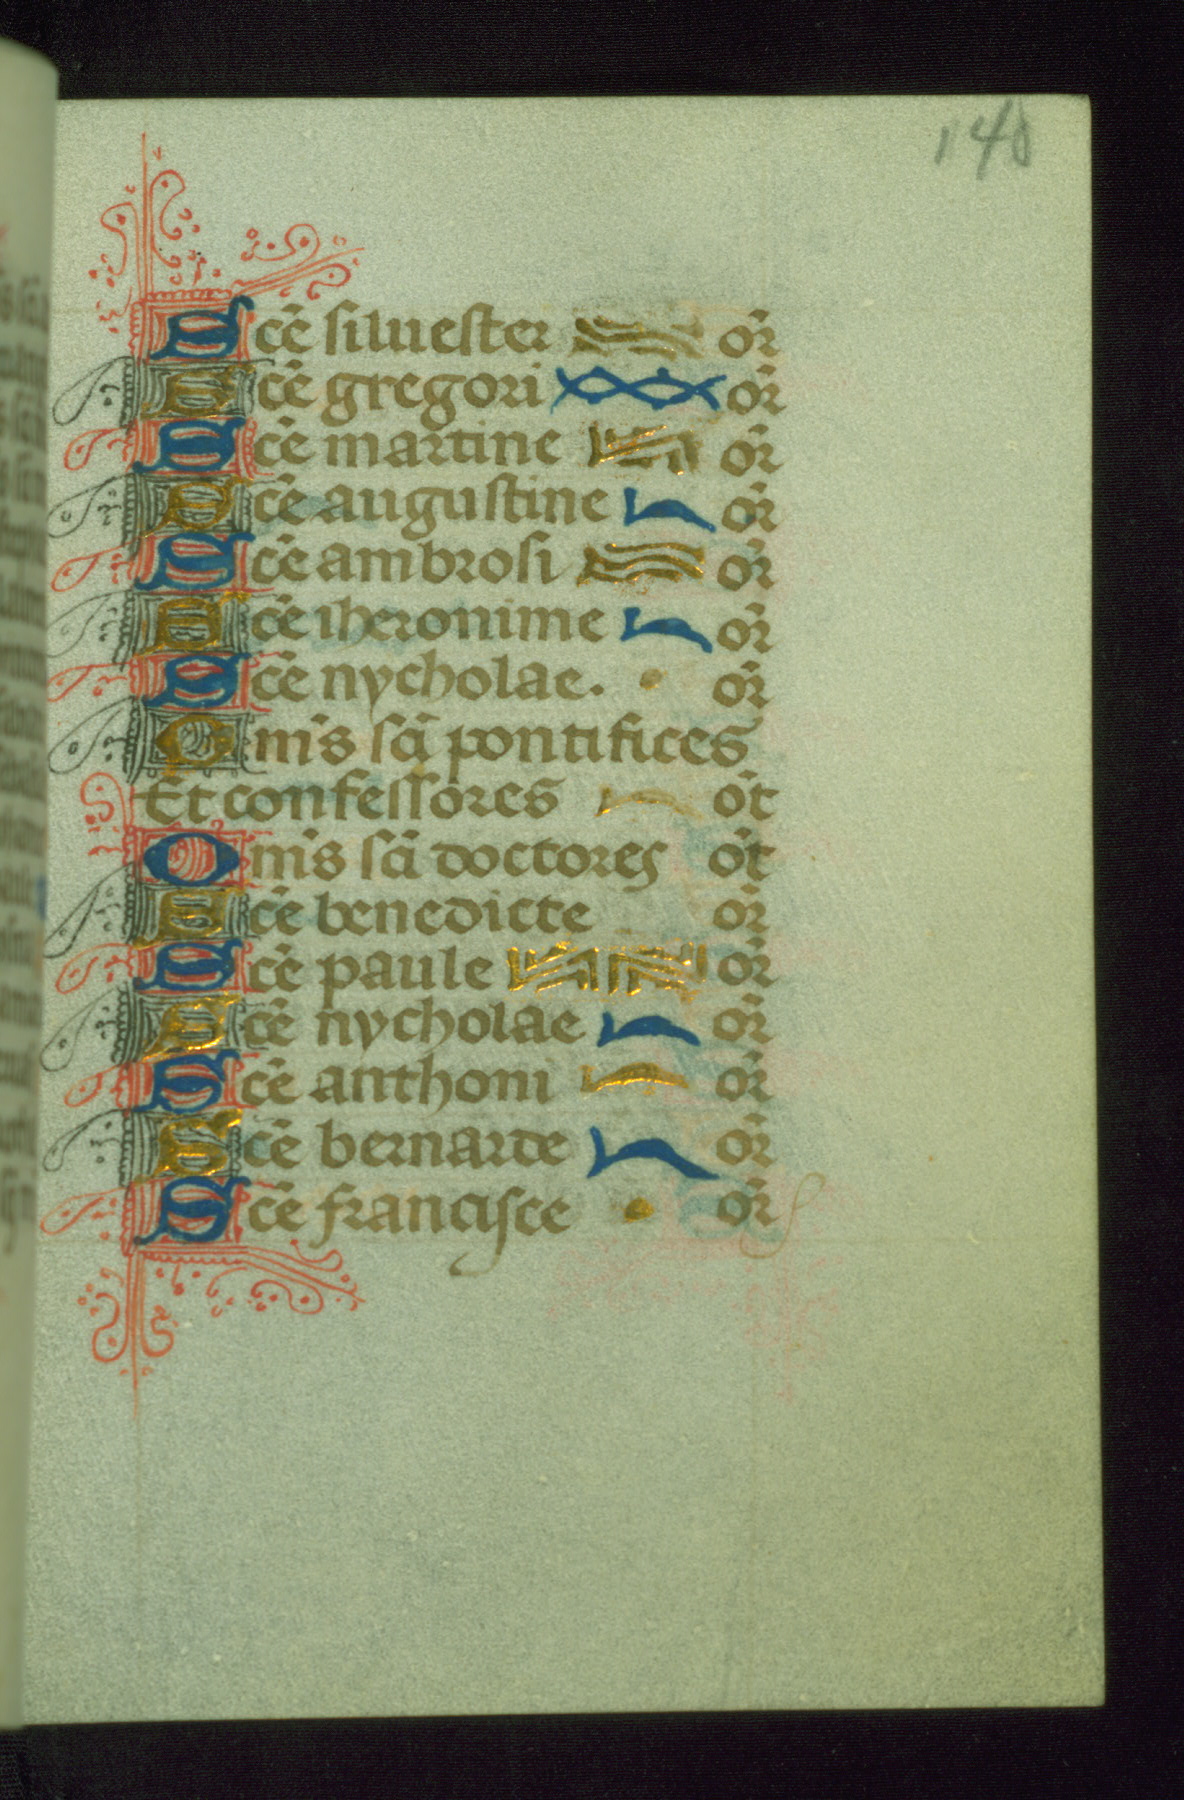 140
Sc̄e siluester or̄
Sc̄e gregori or̄
Sc̄e martine or̄
Sc̄e augustine or̄
Sc̄e ambrosi or̄
Sc̄e iheronime or̄
Sc̄e nycholae. or̄
Om̄s sc̄i pontifices
Et confessores ot̄
Om̄s sc̄i doctores ot̄
Sc̄e benedicte or̄
Sc̄e paule or̄
Sc̄e nycholae or̄
Sc̄e anthoni or̄
Sc̄e bernarde or̄
Sc̄e francisce or̄